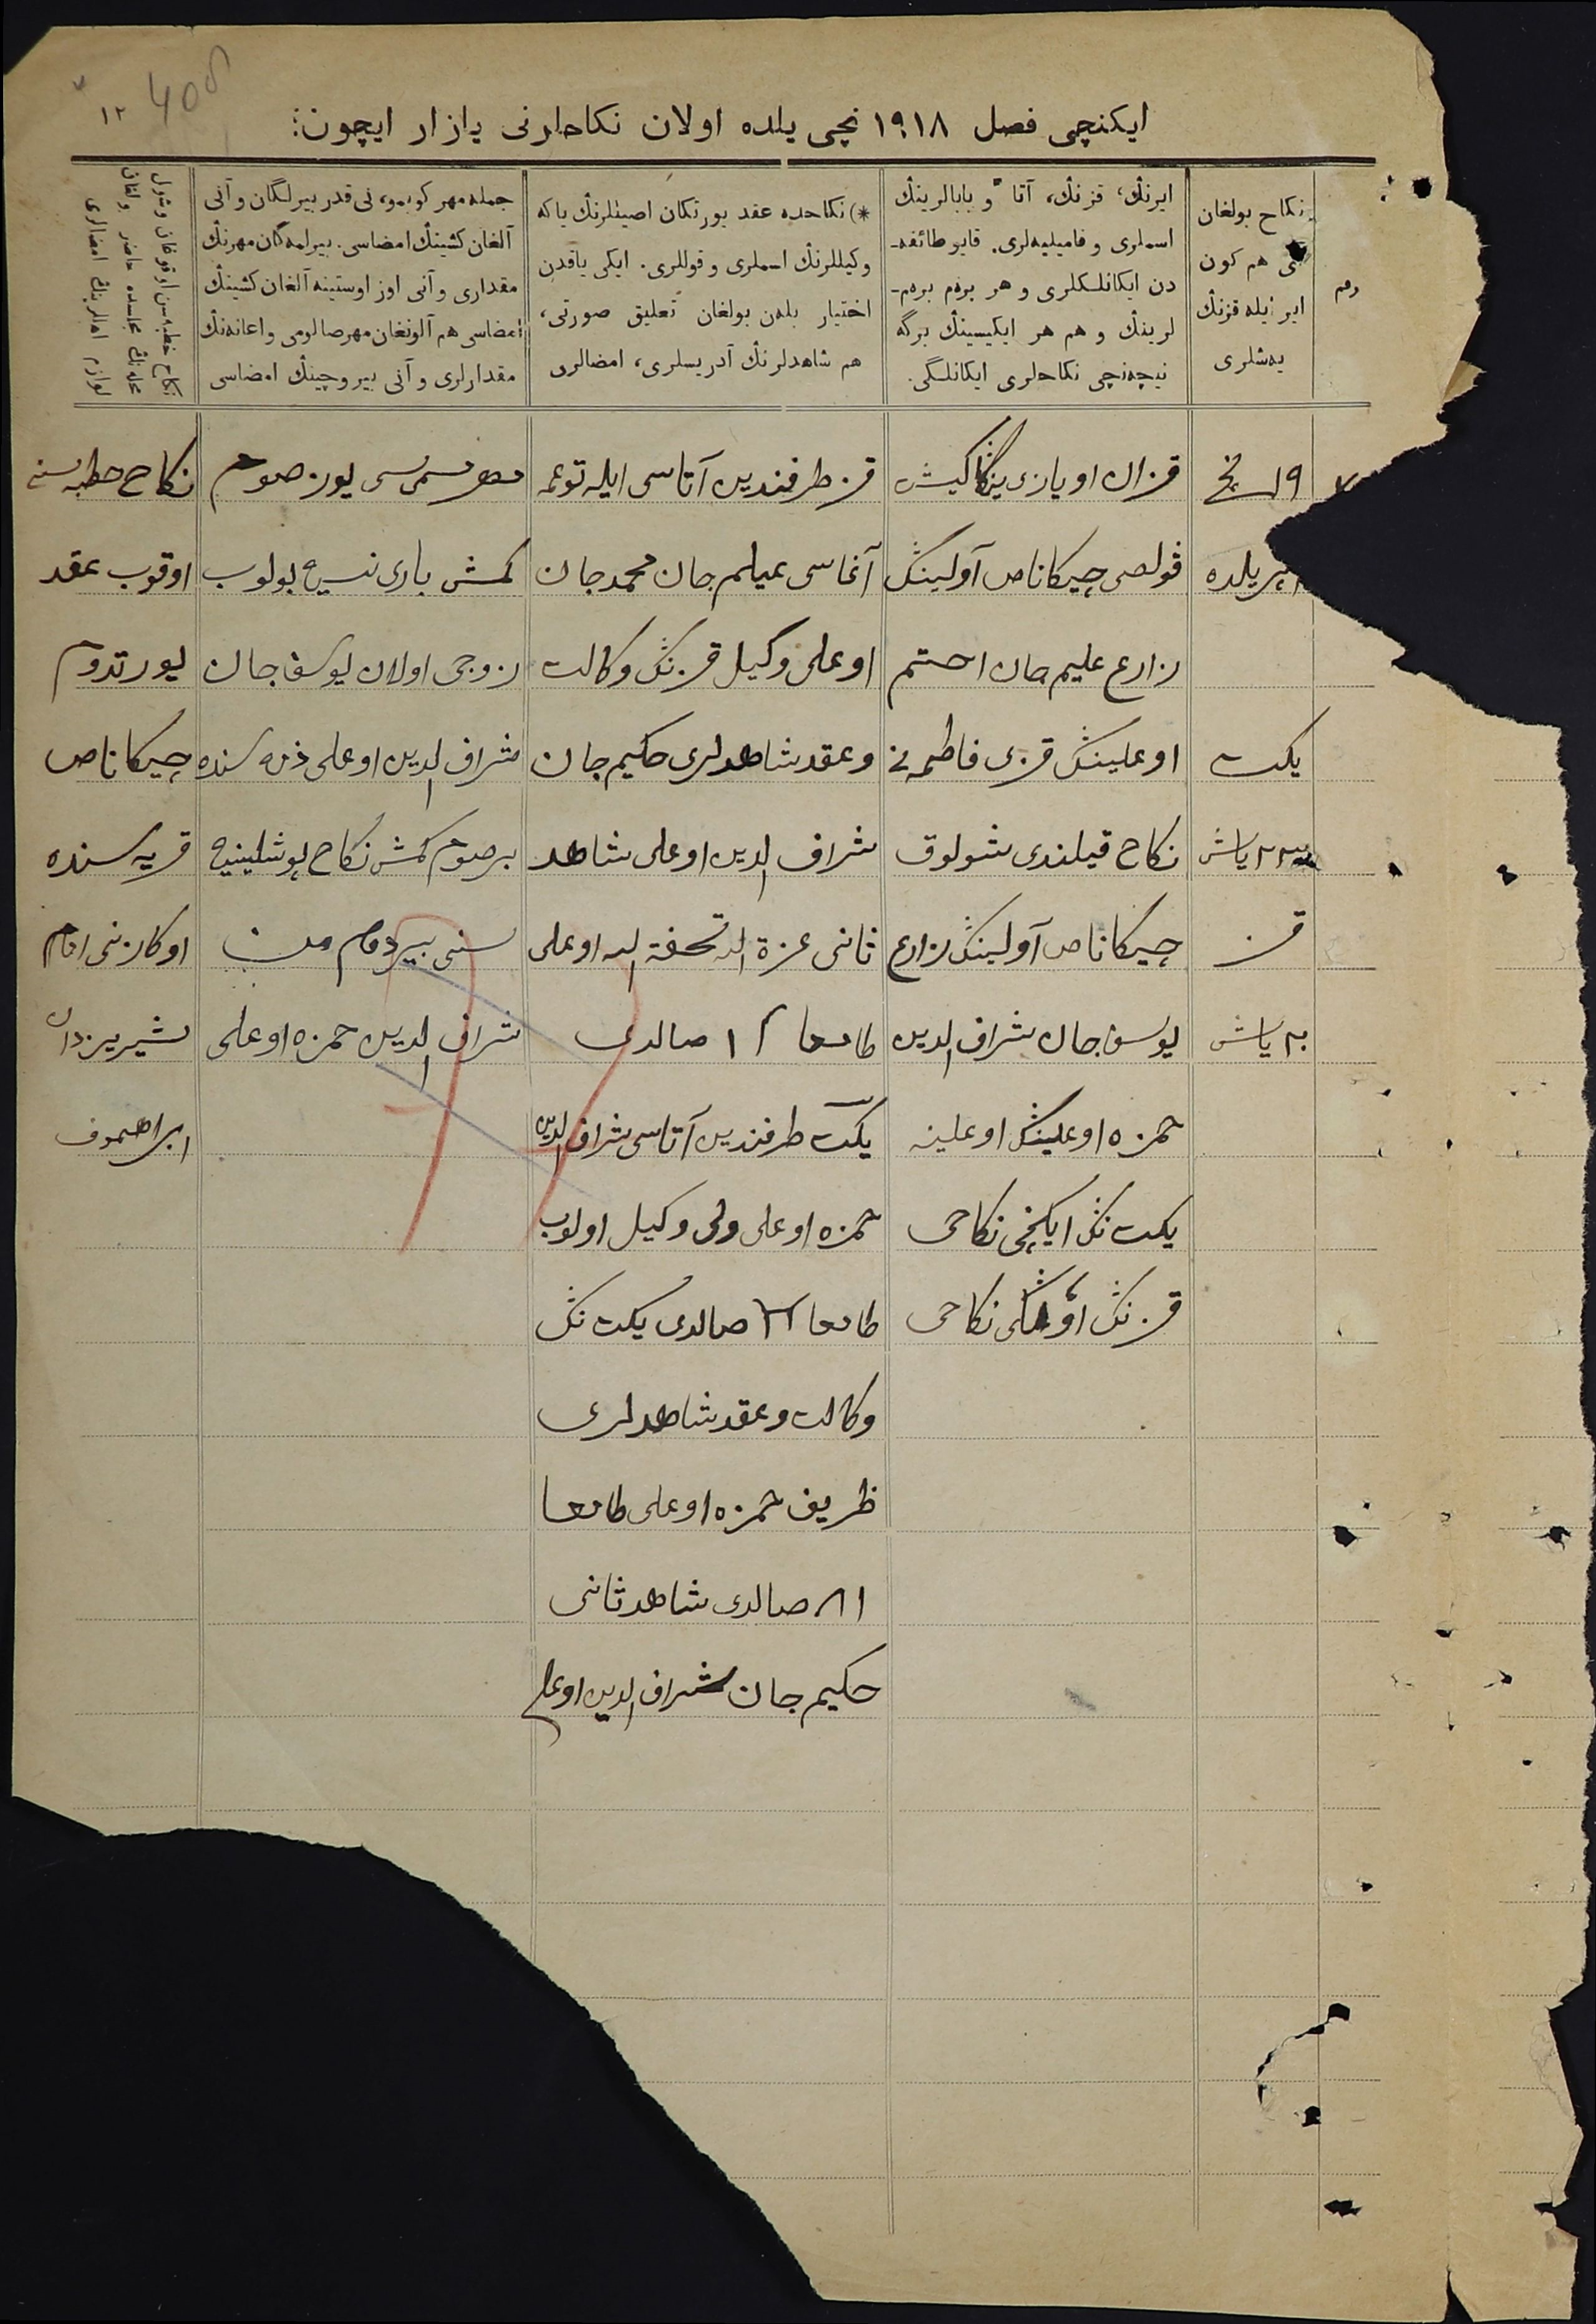 405
١٢
ایکنچی فصل ١٩١٨ نچی یلده اولان نکاحلرنی یازار ایچون:
رقم
نکاح بولغان
هم کون
ایر ایله قزنڭ
یه‌شلری
ایرنڭ، قزنڭ، آتا و بابالرینڭ
اسملری و فامیلیه‌لری. قایو طائفه‌ـ
دن ایکانلکلری و هر بره‌م بره‌م‌ـ
لرینڭ و هم هر ایکیسینڭ برگه
نیچه‌نچی نکاحلری ایکانلگی.
*) نکاحده عقد یورتکان اصیللرنڭ یا که
وکیللرنڭ اسملری و قوللری. ایکی یاقدن
اختیار بله‌ن بولغان تعلیق صورتی،
هم شاهدلرنڭ آدریسلری، امضالری
جمله مهر کوبمو، نی قدر بیرلگان و آنی
آلغان کشینڭ امضاسی. بیرلمه‌گان مهرنڭ
مقداری و آنی اوز اوستینه آلغان کشینڭ
امضاسی هم آلونغان مهر صالومی و اعانه‌نڭ
مقدارلری و آنی بیروچینڭ امضاسی
نکاح خطبه‌سن اوقوغان و شول
محله‌نڭ مجلسده حاضر ولغان
لوازم اهالیرینڭ امضالری
١٩ نچی
یلده
یکت
یاش
قز
یاش
قزان اویازی ینگاکیش
ڤولصی چیکاناص آولینڭ
زارع علیم جان احتم
اوغلینڭ قزی فاطمه‌نی
نکاح قیلندی شولوق
چیکاناص آولینڭ زارع
یوسف جان شراف الدین
حمزه اوغلینڭ اوغلینه
یکت نڭ ایکنچی نکاحی
قزنڭ نکاحی
قز طرفندین آتاسی ایله توغمه
آغاسی علیم جان محمد جان
اوغلی وکیل قزنڭ وکالت
و عقد شاهدلری حکیم جان
شراف الدین اوغلی شاهد
ثانی عزة الله تحفة الله اوغلی
طامغا صالدی
یکت طرفندین آتاسی شراف الدین
حمزه اوغلی ولی وکیل اولوب
طامغا صالدی یکت نڭ
وکالت و عقد شاهدلری
ظریف حمزه اوغلی طامغا
صالدی شاهد ثانی
حکیم جان شراف الدین اوغلی
مهر مسمی سی یوز صوم
کمش باری نسیه بولوب
زوجی اولان یوسف جان
شراف الدین اوغلی ذمه سنده
بر صوم کمش نکاح پوشلینه
سنی بیردم من
شراف الدین حمزه اوغلی
نکاح خطبه سنی
اوقوب عقد
یورتدوم
چیکاناص
قریه سنده
اوکازنی امام
شیریزدان
ابراهیموف